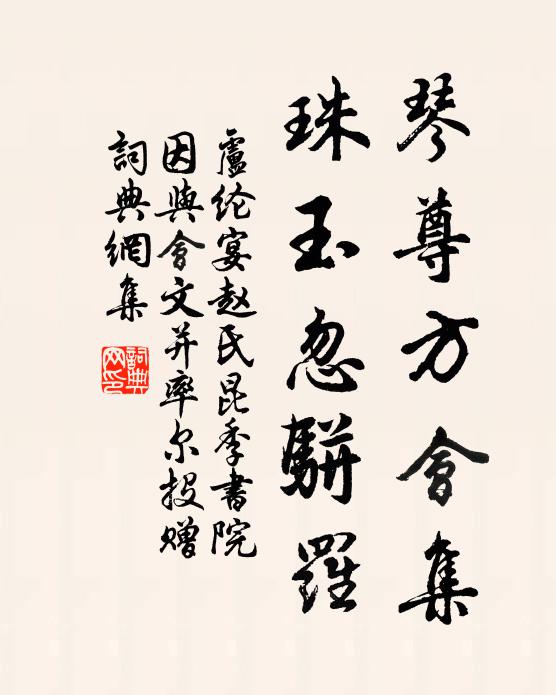 琴尊方會集
珠玉忽駢羅
盧纶宴赵氏昆季書院
因與會文并率尔投赠
詞典網集
詞典
网印